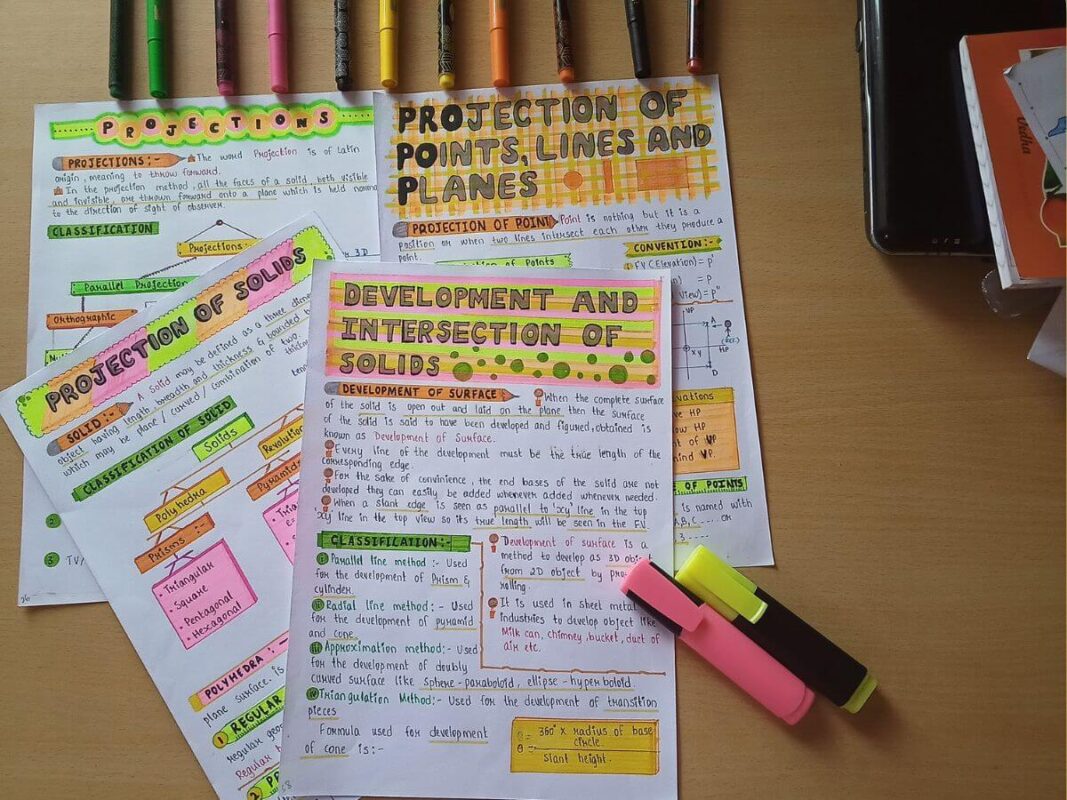 PROJECTIONS
PROJECTIONS:- The word Projection is of Latin
origin, meaning to throw forward.
In the projection method, all the faces of a solid both visible
and invisible, are thrown forward onto a plane which is held
to the direction of sight of observer.
CLASSIFICATION
Projections
3D
Parallel Projection
Orthographic
PROJECTION OF
POINTS, LINES AND
PLANES
PROJECTION OF POINT Point is nothing but it is a
position or when two lines intersect each other they produce a
point.
of Points
CONVENTION:-
FV (Elevation) = p'
= p
View) = p"
VP
A
xy
HP
D
HP
HP
of VP
VP.
OF POINTS
is named with
A, B, C ..... or
3 .....
PROJECTION OF SOLIDS
SOLID:- A Solid may be defined as a three
object having length, breadth and thickness & bounded
which may be plane / curved / combination of two.
CLASSIFICATION OF SOLID
Solids
Polyhedra
Prisms:-
Pyramids
• Triangular
• Square
• Pentagonal
• Hexagonal
POLYHEDRA:-
plane surface. is
1 REGULAR
regular
Regular
2
DEVELOPMENT AND
INTERSECTION OF
SOLIDS
DEVELOPMENT OF SURFACE When the complete surface
of the solid is open out and laid on the plane then the surface
of the solid is said to have been developed and figured, obtained is
known as Development of Surface.
Every line of the development must be the true length of the
corresponding edge.
For the sake of convinience, the end bases of the solid are not
developed they can easily be added whenever added whenever needed.
When a slant edge is seen as parallel to 'xy' line in the top
'xy line in the top view so its true length will be seen in the F.V.
CLASSIFICATION:-
i Parallel line method:- Used
for the development of Prism &
cylinder.
ii Radial line method:- Used
for the development of pyramid
and cone.
iii Approximation method:- Used
for the development of doubly
curved surface like sphere-paraboloid, ellipse-hyperboloid
iv Triangulation Method:- Used for the development of transition
pieces
Development of surface is a
method to develop as 3D
from 2D object by
rolling.
It is used in sheet metal
industries to develop object like
Milk can, chimney, bucket, duct of
air etc.
Formula used for development
of cone is:-
θ = 360° x radius of base
circle
slant height.
Vidha